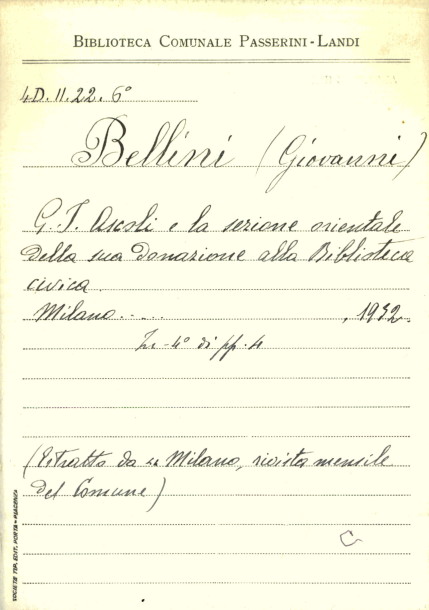 BIBLIOTECA COMUNALE PASSERINI-LANDI
4D.II.22.6°
Bellini (Giovanni)
G. I. Ascoli e la sezione orientale
della sua donazione alla Biblioteca
civica.
Milano..... , 1932.
In-4° di pp. 4
(Estratto da "Milano, rivista mensile
del Comune)
C
SOCIETÀ TIP. EDIT. PORTA - PIACENZA